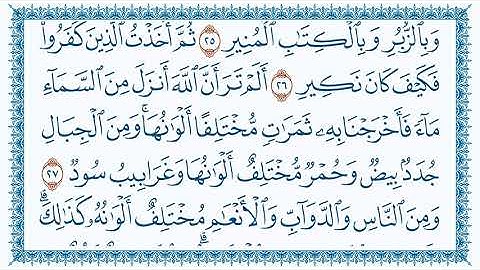 وَبِالزُّبُرِ وَبِالْكِتَٰبِ الْمُنِيرِ ۝٢٥ ثُمَّ أَخَذْتُ الَّذِينَ كَفَرُوا
فَكَيْفَ كَانَ نَكِيرِ ۝٢٦ أَلَمْ تَرَ أَنَّ اللَّهَ أَنزَلَ مِنَ السَّمَاءِ
مَاءً فَأَخْرَجْنَا بِهِۦ ثَمَرَٰتٍ مُّخْتَلِفًا أَلْوَٰنُهَا ۚ وَمِنَ الْجِبَالِ
جُدَدٌۢ بِيضٌ وَحُمْرٌ مُّخْتَلِفٌ أَلْوَٰنُهَا وَغَرَابِيبُ سُودٌ ۝٢٧
وَمِنَ النَّاسِ وَالدَّوَآبِّ وَالْأَنْعَٰمِ مُخْتَلِفٌ أَلْوَٰنُهُۥ كَذَٰلِكَ ۗ